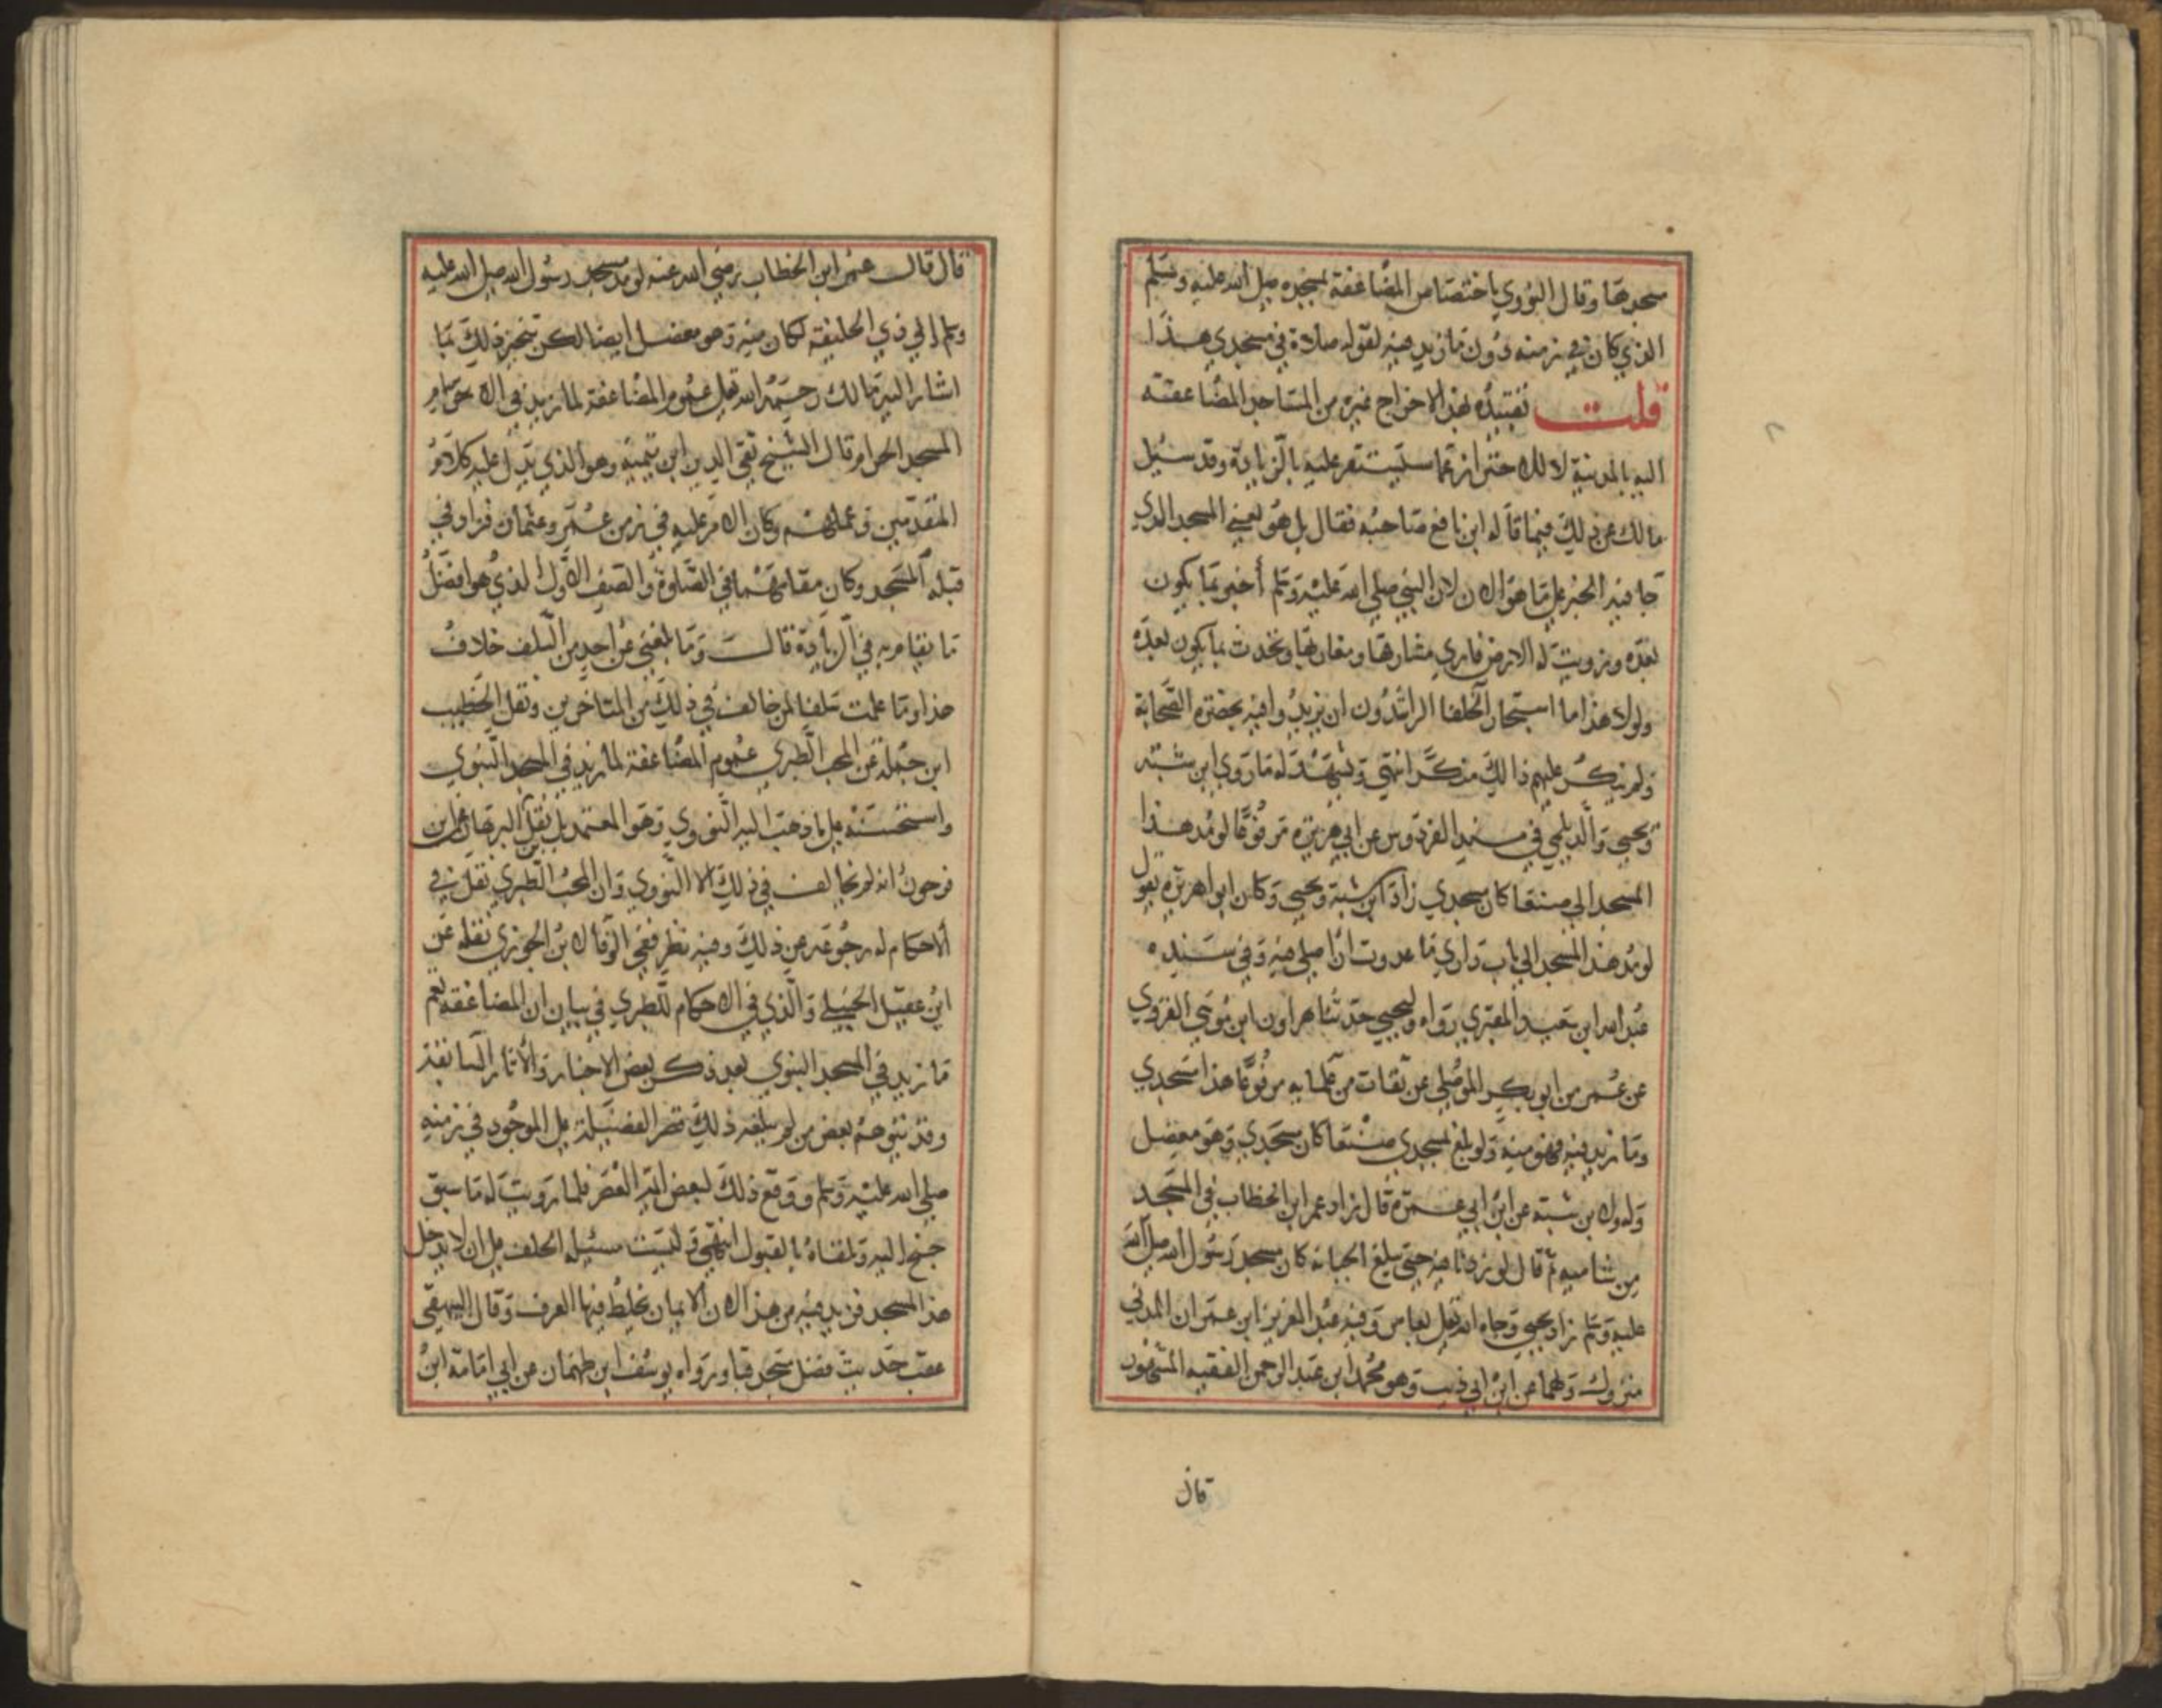 سجدها وقال النووي باختصاص المضاعفة لمسجده صلى الله عليه وسلم
الذي كان في زمنه دون ما زيد فيه لقوله صلاة في مسجدي هذا
قلت تقييده بهذا لاخراج غيره من المساجد المضاعفته
اليه بالمدينة لا لالاحتراز عما سيستقر عليه بالزيادة وقد سئل
مالك عن ذلك فيما قاله ابن نافع صاحبه فقال بل هو يعني المسجد الذي
جا فيه الخبر على ما هو الان لان النبي صلى الله عليه وسلم أخبر بما يكون
بعده وزويت له الارض فاري مشارقها ومغاربها وتحدث بما يكون بعده
ولولا هذا ما استجاز الخلفا الراشدون ان يزيدوا فيه بحضرة الصحابة
ولم ينكر عليهم ذالك منكر انتهي ويشهد له ما روي ابن شبه
ويحيي والديلمي في مسند الفردوس عن ابي هريرة مرفوعا لو مد هذا
المسجد الي صنعا كان مسجدي زاد ابن شبة ويحيي وكان ابو اهريرة يقول
لو مد هذا المسجد الي باب داري ما عدوت ان اصلي فيه وفي سنده
عبد الله ابن سعيد المقبري رواه وليحيي حدثنا هراون ابن موسي الفروي
عن عمر بن ابي بكر الموصلي عن ثقات من علمايه مرفوعا هذا مسجدي
وما زيد فيه فهو منه ولو بلغ بمسجدي صنعا كان مسجدي وهو معضل
وله ولابن شبة عن ابن ابي عمرة قال زاد عمر ابن الخطاب في المسجد
من شاميه ثم قال لو زدنا فيه حتي يبلغ الجبانة كان مسجد رسول الله صلى الله
عليه وسلم زاد يحيي وجاه الله تعالى بعامر وفيه عبد العزيز ابن عمران المدني
متروك ولهما عن ابن ابي ذيب وهو محمد ابن عبد الرحمن الفقيه المشهور
قال
قال قال عمر ابن الخطاب رضي الله عنه لو مد مسجد رسول الله صلى الله عليه
وسلم الي ذي الحليفة لكان منه وهو معضل ايضا لكن ينجبر ذلك بما
اشار اليه مالك رحمه الله تعالى عموم المضاعفة لما زيد في الاحرام
المسجد الحرام قال الشيخ تقي الدين ابن تيمية وهو الذي يدل عليه كلام
المتقدمين وعملهم وكان الامر عليه في زمن عمر وعثمان فزاد في
قبلة المسجد وكان مقامهما في الصلوة والصف الاول الذي هو افضل
ما يقام به في الزيادة قالت وما بلغني عن احد من السلف خلاف
هذا وما علمت سلفا لمن خالف في ذلك من المتاخرين ونقل الخطيب
ابن جملة عن المحب الطبري عموم المضاعفة لما زيد في المسجد النبوي
واستحسنه على ما ذهب اليه النووي وهو المعتمد بل نقل البرهان ابن
فرحون انه لم يخالف في ذلك الا النووي وان المحب الطبري نقل في
الاحكام له رجوعه عن ذلك وفيه نظر ففي الوفا لابن الجوزي نقله عن
ابن عقيل الحنبلي والذي في الاحكام للطبري في بيان ان المضاعفة تعم
ما زيد في المسجد النبوي بعد ذكر بعض الاخبار والاثار السابقة
وقد يتوهم بعض من لم يبلغه ذلك قصر الفضيلة على الموجود في زمنه
صلى الله عليه وسلم ووقع ذلك لبعض ايمة العصر فلما رويت له ما سبق
جنح اليه وتلقاه بالقبول انتهي وليست مسئلة الحلف على ان لا يدخل
هذا المسجد فزيد فيه من هذا لان الايمان تخلط فيها العرف وقال البيهقي
عقب حديث فضل مسجد قبا ورواه يوسف ابن طهمان عن ابي امامة ابن